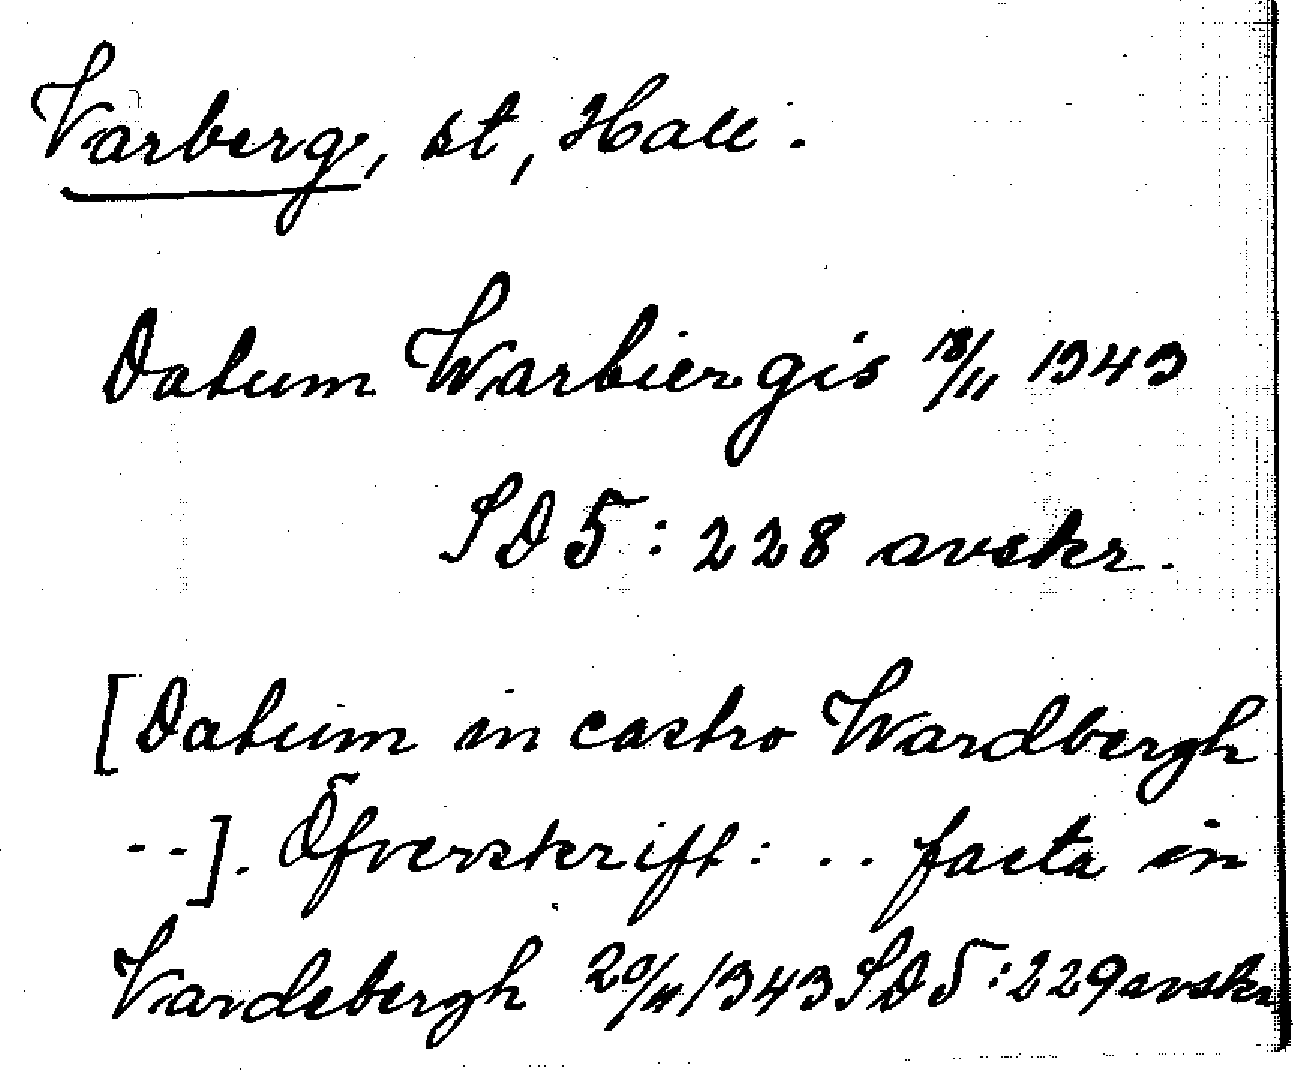 Varberg, st, Hall.
Datum Warbiergis 18/11 1343
SD 5: 228 avskr.
[Datum in castro Wardbergh
--]. Öfverskrift: .. facta in
Vardebergh 20/11 1343 SD 5: 229 avskr